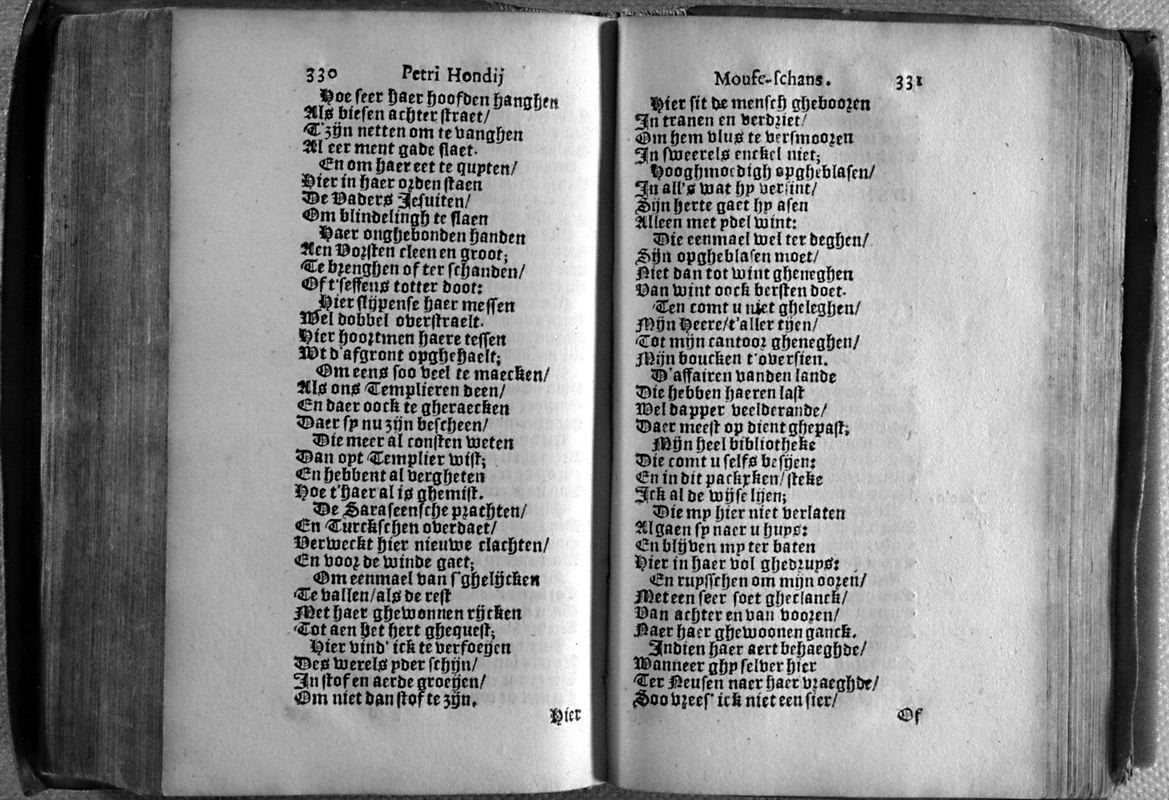 330 Petri Hondij
Hoe seer haer hoofden hanghen
Als biesen achter straet/
T'zijn netten om te vanghen
Al eer ment gade slaet.
En om haer eet te quyten/
Hier in haer orden staen
De Vaders Jesuiten/
Om blindelingh te slaen
Haer onghebonden handen
Aen Vorsten cleen en groot;
Te brenghen of ter schanden/
Of t'seffens totter doot:
Hier slijpense haer messen
Wel dobbel overstraelt.
Hier hoortmen haere tessen
Wt d'afgront opghehaelt;
Om eens soo veel te maecken/
Als ons Templieren deen/
En daer oock te gheraecken
Daer sy nu zijn bescheen/
Die meer al consten weten
Dan opt Templier wist;
En hebbent al vergheten
Hoe t'haer al is ghemist.
De Saraseensche prachten/
En Turckschen overdaet/
Verweckt hier nieuwe clachten/
En voor de winde gaet;
Om eenmael van s'ghelijcken
Te vallen/als de rest
Met haer ghewonnen rijcken
Tot aen het hert ghequest;
Hier vind' ick te verfoeyen
Des werels yder schijn/
In stof en aerde groeyen/
Om niet dan stof te zijn.
Hier
Moufe-schans. 331
Hier sit de mensch ghebooren
In tranen en verdriet/
Om hem vlus te versmooren
In sweerels enckel niet;
Hooghmoedigh opgheblasen/
In all's wat hy versint/
Sijn herte gaet hy asen
Alleen met ydel wint:
Die eenmael wel ter deghen/
Sijn opgheblasen moet/
Niet dan tot wint gheneghen
Van wint oock bersten doet.
Ten comt u niet gheleghen/
Mijn Heere/t'aller tijen/
Tot mijn cantoor gheneghen/
Mijn boucken t'oversien.
D'affairen vanden lande
Die hebben haeren last
Wel dapper veelderande/
Daer meest op dient ghepast;
Mijn heel bibliotheke
Die comt u selfs besijen:
En in dit packxken/steke
Ick al de wijse lijen;
Die my hier niet verlaten
Al gaen sy naer u huys:
En blijven my ter baten
Hier in haer vol ghedruys:
En ruysschen om mijn ooren/
Met een seer soet gheclanck/
Van achter en van vooren/
Naer haer ghewoonen ganck.
Indien haer aert behaeghde/
Wanneer ghy selver hier
Ter Neusen naer haer vraeghde/
Soo vrees' ick niet een sier/
Of